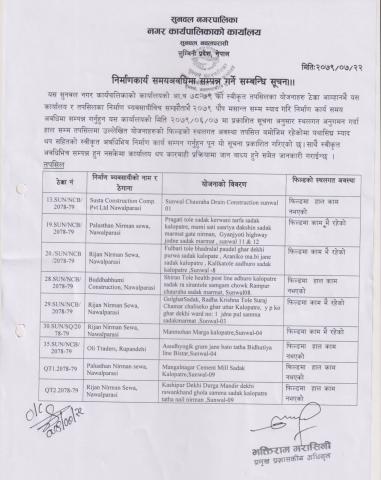 सुनवल नगरपालिका
नगर कार्यपालिकाको कार्यालय
सुनवल नवलपरासी
लुम्बिनी प्रदेश, नेपाल
मिति:२०७९/०७/२२
निर्माणकार्य समयअवधिमा सम्पन्न गर्ने सम्बन्धि सूचना।।
यस सुनवल नगर कार्यपालिकाको कार्यालयको आ.व ७८/७९ को स्वीकृत तपसिलका योजनाहरु ठेक्का आव्हानभै यस
कार्यालय र तपसिलका निर्माण व्यवसायीबिच सम्झौताभै २०७९ पौष मसान्त सम्म म्याद गरि निर्माण कार्य समय
अवधिमा सम्पन्न गर्नुहुन यस कार्यालयको मिति २०७९/०६/०७ मा प्रकाशित सूचना अनुसार स्थलगत अनुगमन गर्दा
हाल सम्म तपसिलमा उल्लेखित योजनाहरुको फिल्डको स्थलगत अवस्था तपसिल बमोजिम रहेकोमा यथासिघ्र म्याद
थप सहितको स्वीकृत अवधिभित्र निर्माण कार्य सम्पन्न गर्नुहुन पुन यो सूचना प्रकाशित गरिएको छ।साथै स्वीकृत
अवधिभित्र सम्पन्न हुन नसकेमा कार्यालय थप कारवाही प्रक्रियामा जान बाध्य हुने समेत जानकारी गराईन्छ ।
तपसिल
ठेक्का नं निर्माण व्यवसायीको नाम र ठेगाना योजनाको विवरण फिल्डको स्थलगत अवस्था
13.SUN/NCB/2078-79 Susta Construction Comp. Pvt.Ltd Nawalparasi Sunwal Chauraha Drain Construction sunwal 01 फिल्डमा हाल काम नभएको
19.SUN/NCB/2078-79 Palasthan Nirman sewa, Nawalparasi Pragati tole sadak kerwani tarfa sadak kalopatre, mami sati asariya dakshin sadak marmat gate nirman, Gyanjyoti highway jodne sadak marmat , sunwal 11 & 12 फिल्डमा काम भै रहेको
20..SUN/NCB/2078-79 Rijan Nirman Sewa, Nawalparasi Fulbari tole bhadralal paudel ghar dekhi purwa sadak kalopatre , Araniko ma.bi jane sadak kalopatre , Kalikatole aadhuro sadak kalopatre ,Sunwal -8 फिल्डमा काम भै रहेको
28.SUN/NCB/2078-79 Buddhabhumi Construction, Nawalparasi Shiran Tole health post line adhuro kalopatre sadak ra sirantole samgam chowk Rampur chauraha sadak marmat, Sunwal08 फिल्डमा हाल काम नभएको
29.SUN/NCB/2078-79 Rijan Nirman Sewa, Nawalparasi GolgharSadak, Radha Krishna Tole Suraj Chamar chaliseko ghar uttar Kalopatre, y p ko ghar dekhi ward no: 1 jdne pul samma sadakmarmat ,Sunwal-03 फिल्डमा हाल काम नभएको
30.SUN/SQ/2078-79 Rijan Nirman Sewa, Nawalparasi Manmohan Marga kalopatre,Sunwal-04 फिल्डमा काम भै रहेको
35.SUN/NCB/2078-79 Oli Traders, Rupandehi Aaudhyogik gram jane bato tatha Bidhutiya line Bistar,Sunwal-04 फिल्डमा हाल काम नभएको
QT1.2078-79 Palasthan Nirman sewa, Nawalparasi Mangalnagar Cement Mill Sadak Kalopatre,Sunwal-09 फिल्डमा हाल काम नभएको
QT2.2078-79 Rijan Nirman Sewa, Nawalparasi Kashipur Dekhi Durga Mandir dekhi rawankhand ghola samma sadak kalopatre tatha nali nirman ,Sunwal-09 फिल्डमा हाल काम नभएको
भक्तिराम मरासिनी
प्रमुख प्रशासकीय अधिकृत